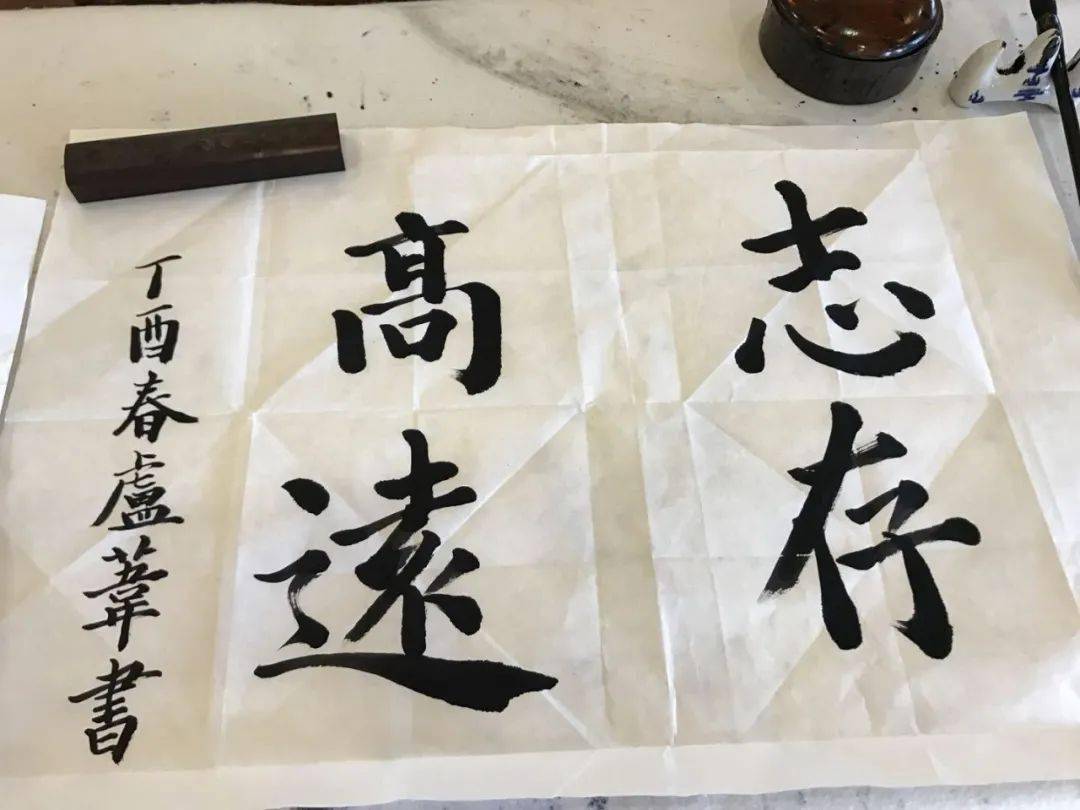 志存
高遠
丁酉春盧葦書